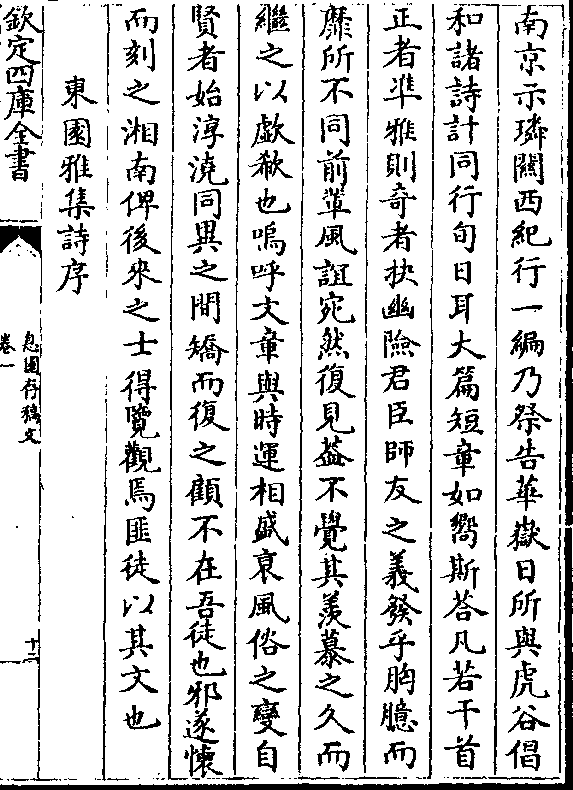 南京示璘關西紀行一編乃祭告華嶽日所與虎谷倡
和諸詩計同行旬日耳大篇短章如嚮斯荅凡若干首
正者準雅則奇者抉幽險君臣師友之義發乎胸臆而
靡所不同前軰風誼宛然復見葢不覺其羨慕之久而
繼之以歔欷也嗚呼文章與時運相盛衰風俗之變自
賢者始淳澆同異之間矯而復之顧不在吾徒也邪遂懐
而刻之湘南俾後來之士得覽觀焉匪徒以其文也
東園雅集詩序
欽定四庫全書
息園存稿文
卷一
十二